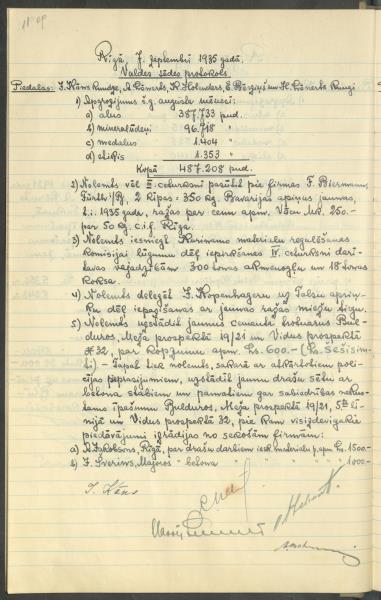 Rīgā, 7. septembrī 1935 gadā.
Valdes sēdes protokols
Piedalās:
1) Iepirdzējums š.g. augusta mēnesī:
a) alus 387.733 pud.
b) minerālūdeņi 96.718 "
c) medalus 1.404 "
d) etiķis 1.353 "
Kopā 487.208 pud.
2) Nolemts vēl III. ceturksnī pasūtīt pie firmas F. Biermann,
Fürth i/B, 2 Ripas = 350 kg. Bavarijas apiņus jaunas,
t.i. 1935 gada, ražas par cenu apm. Vācu Mk. 250.-
par 50 kg. c.i.f. Rīga.
3) Nolemts iesniegt Kurināmo materialu regulēšanas
Komisijai lūgumu dēļ iepirkšanas IV. ceturksnī darī-
tavas vajadzībām 300 tonas akmeņogļu un 18 tonas
koksa.
4) Nolemts deleģēt J. Kopenhageru uz Talsu apriņ-
ķi dēļ iepazīšanas ar jaunas ražas miežu tirgu.
5) Nolemts uzstādīt jaunus cementa trotuarus Bul-
duros, Meža prospektā 19/21 un Vidus prospektā
# 32, par kopsummu apm. Ls. 600.- (Ls. Sešsim-
ti) - Tāpat tiek nolemts, sakarā ar atkārtotiem poli-
cijas pieprasījumiem, uzstādīt jaunu drašu sētu ar
betona stabiem un pamatiem gar sabiedrības nekus-
tamo īpašumu Bulduros, Meža prospektā 19/21, 5tā lī-
nijā un Vidus prospektā 32, pie kam visizdevīgākie
piedāvājumi izrādījās no sekošām firmām:
a) A. Jakobsons, Rīgā, par drašu darbiem iesk. materialu p. apm Ls. 1500.-
b) J. Sveriņš, Majoros " betona " " " " " 1000.-